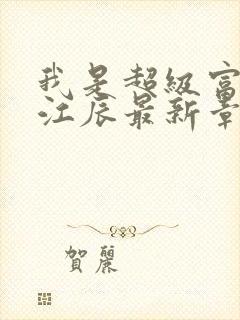 我是超级富
江辰最新章
賀麗